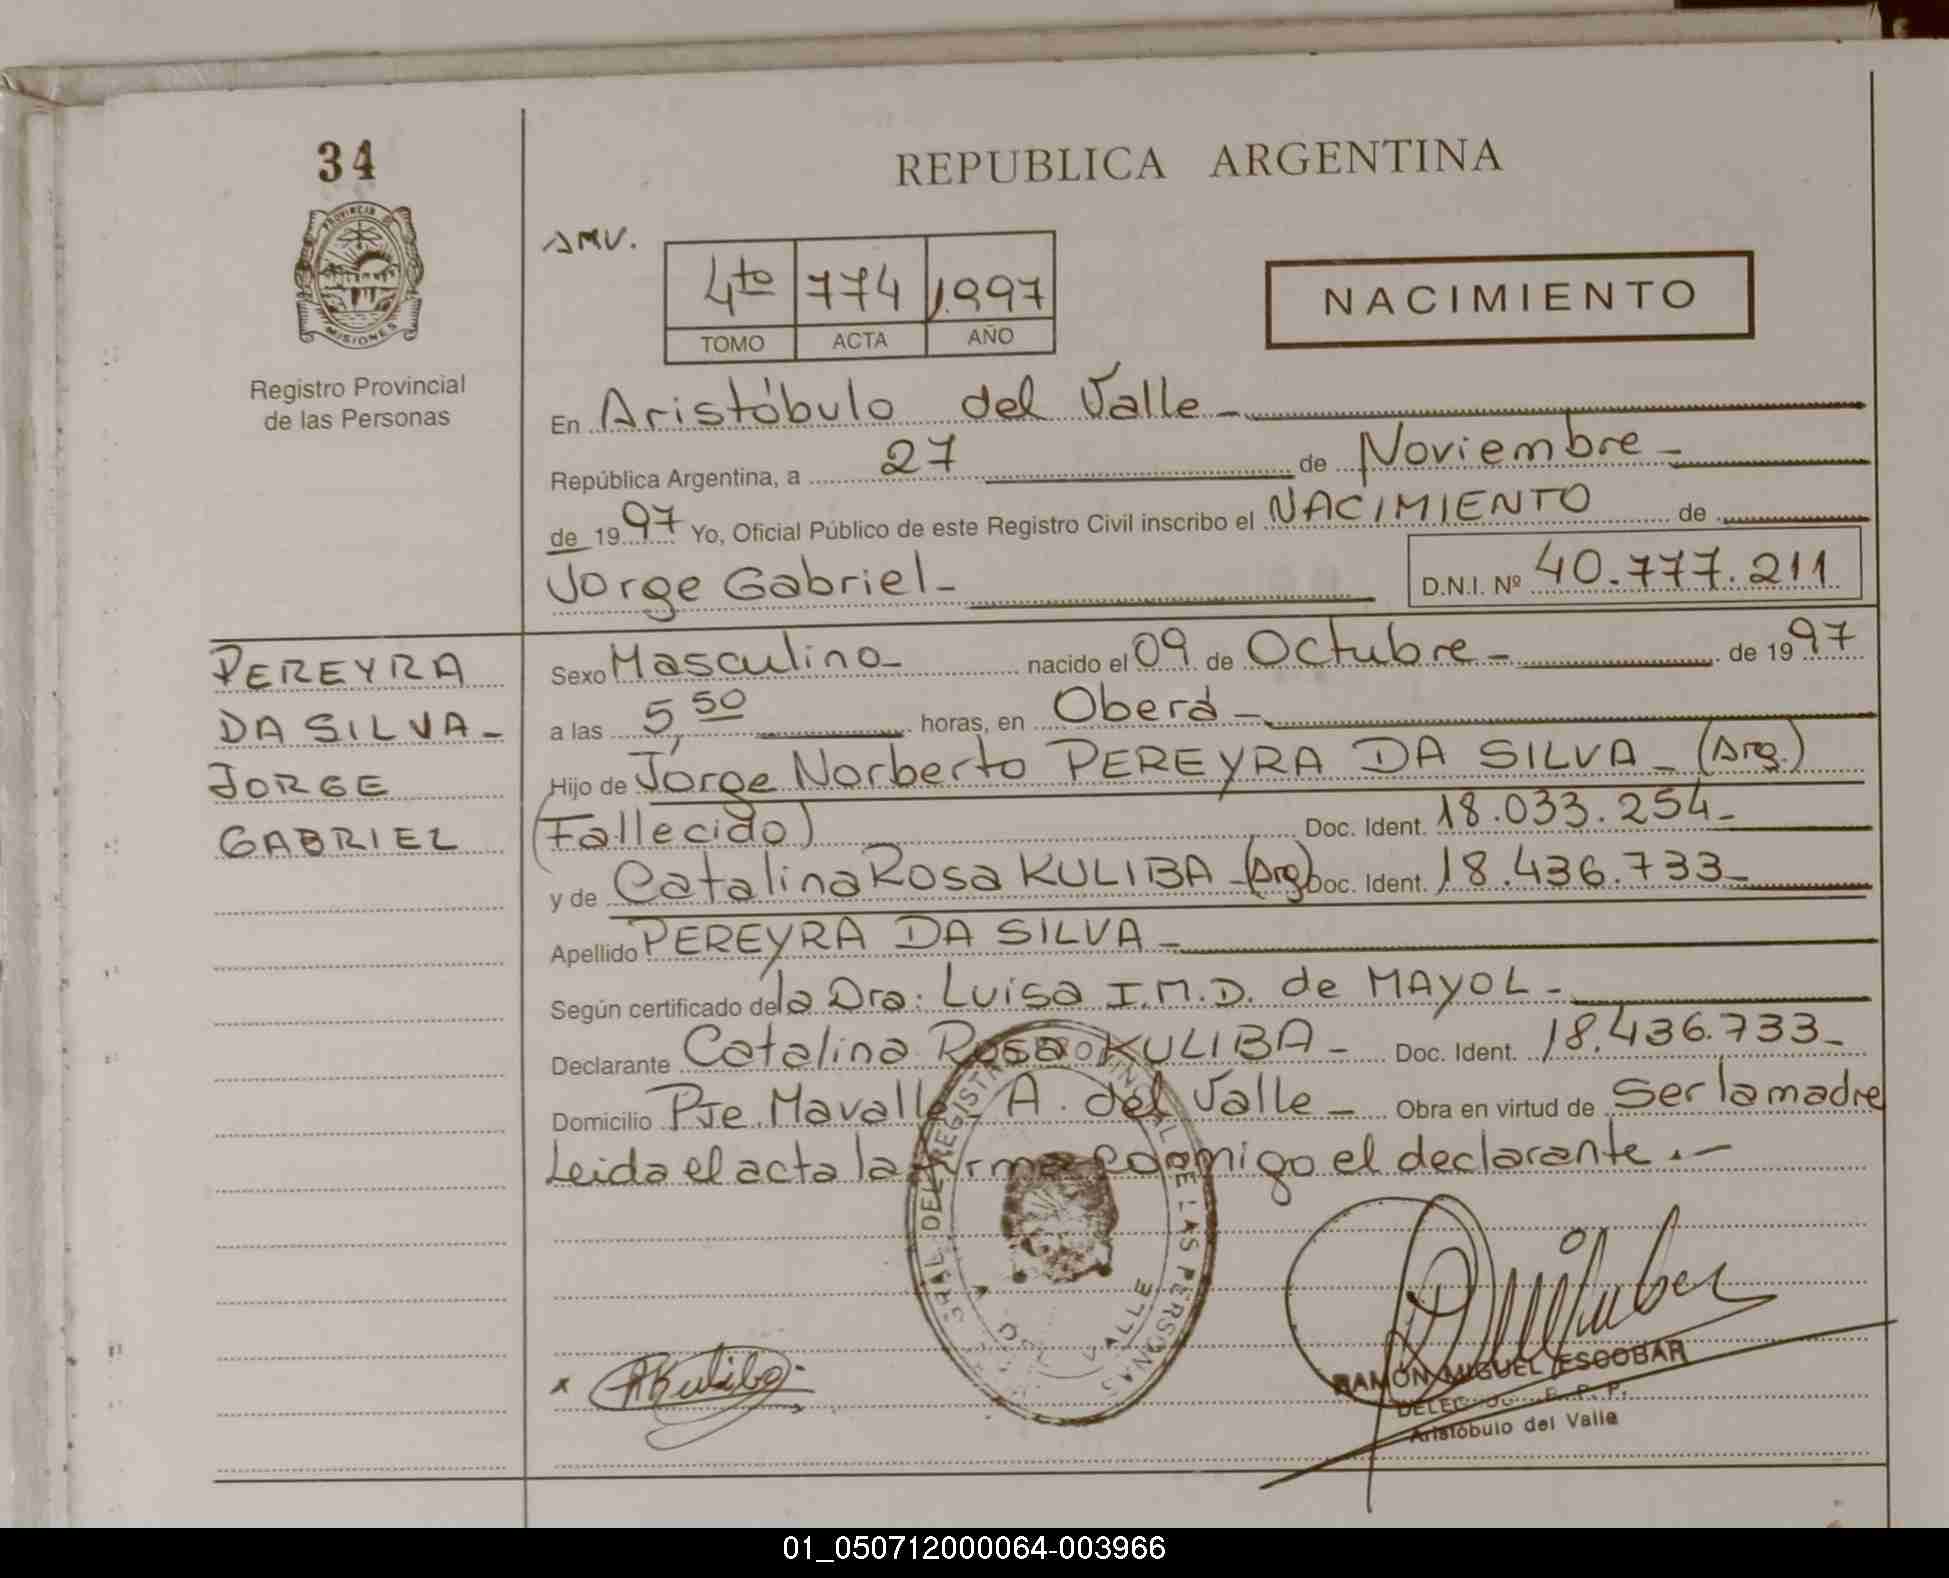 34
PROVINCIA DE
MISIONES
Registro Provincial
de las Personas
REPUBLICA ARGENTINA
AMV.
4to 774 1.997
TOMO ACTA AÑO
NACIMIENTO
En Aristóbulo del Valle -
República Argentina, a 27 de Noviembre -
de 1997 Yo, Oficial Público de este Registro Civil inscribo el NACIMIENTO de
Jorge Gabriel - D.N.I. Nº 40.777.211
PEREYRA
DA SILVA -
JORGE
GABRIEL
Sexo Masculino - nacido el 09 de Octubre - de 1997
a las 5,50 horas, en Oberá -
Hijo de Jorge Norberto PEREYRA DA SILVA - (Arg.)
(Fallecido) Doc. Ident. 18.033.254 -
y de Catalina Rosa KULIBA - (Arg) Doc. Ident. 18.436.733 -
Apellido PEREYRA DA SILVA -
Según certificado de la Dra: Luisa I.M.D. de MAYOL -
Declarante Catalina Rosa KULIBA - Doc. Ident. 18.436.733 -
Domicilio Pje. Mavalle A. del Valle - Obra en virtud de ser la madre
Leida el acta la firma conmigo el declarante . -
DEL REGISTRO PROVINCIAL DE LAS PERSONAS
A. DEL VALLE
x RKuliba
RAMON MIGUEL ESCOBAR
R. P. P.
Aristóbulo del Valle
01_050712000064-003966